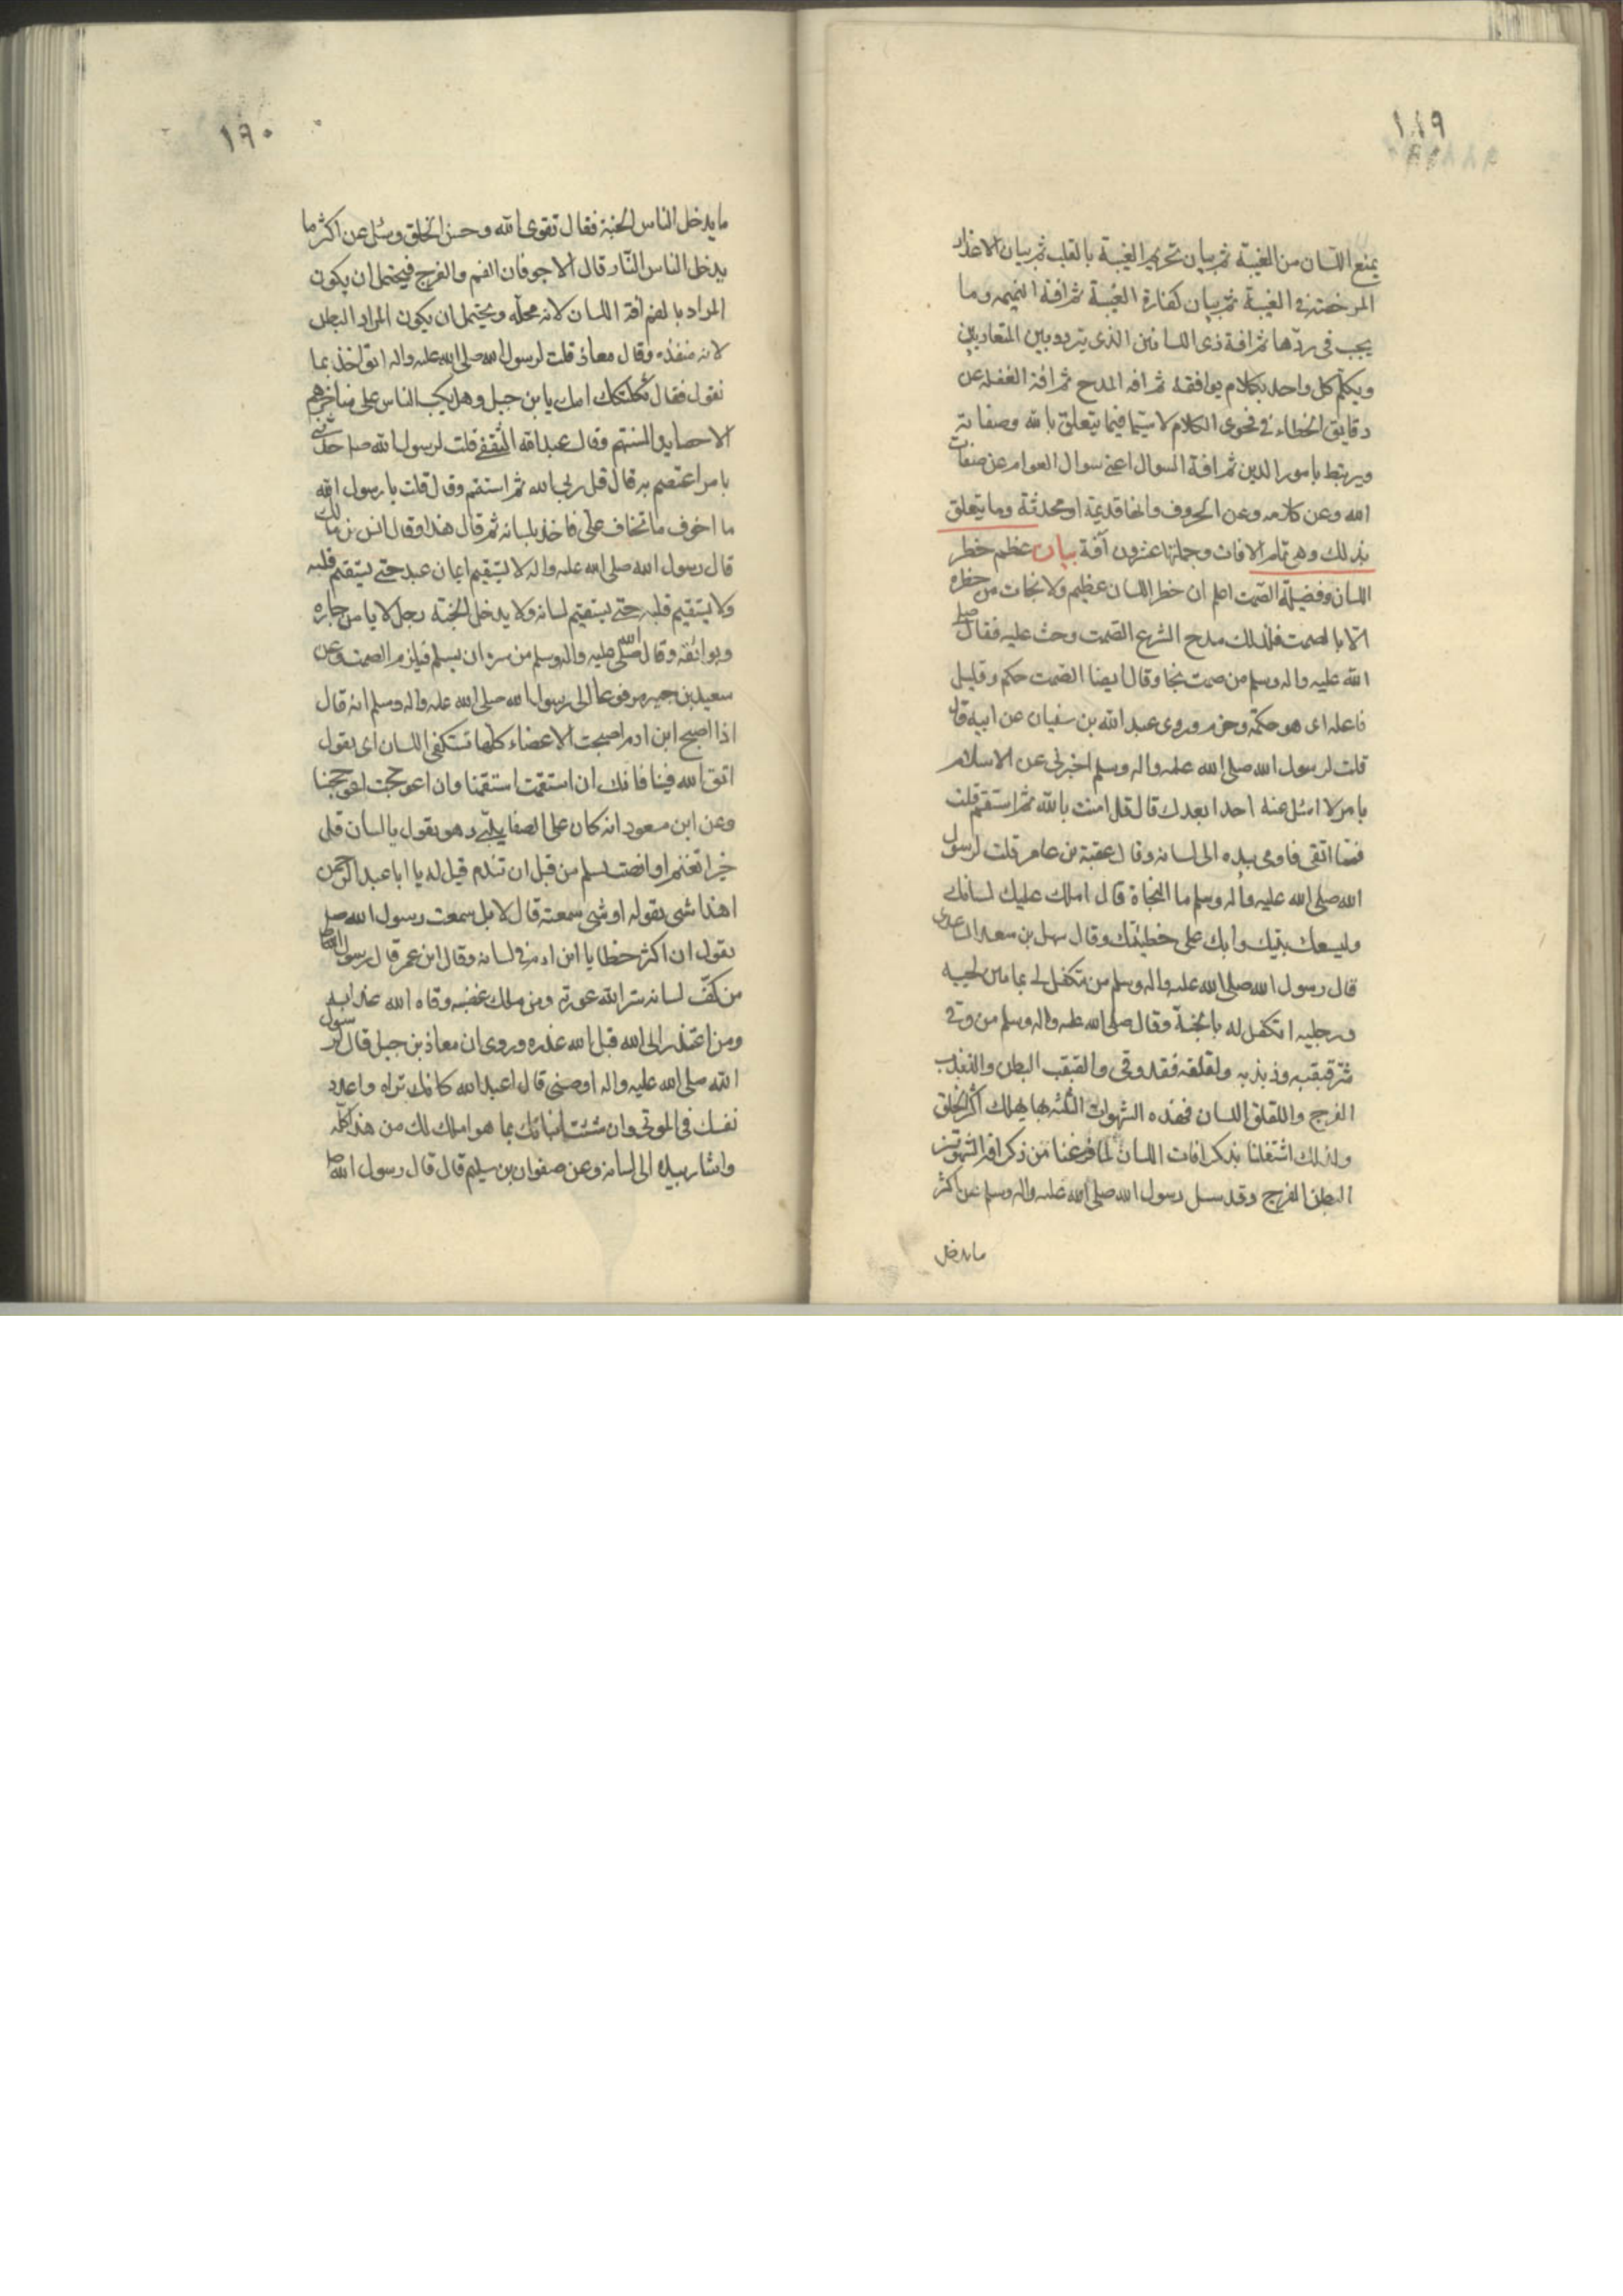 ١٨٩
يمنع اللسان من الغيبة ثم بيان تحريم الغيبة بالقلب ثم بيان الاعذار
المرخصة في الغيبة ثم بيان كفارة الغيبة ثم افة النميمه وما
يجب في ردّها ثم افة ذى اللسانين الذى يتردد بين المتعاديين
ويكلّم كل واحد بكلام يوافقه ثم افه المدح ثم افة الغفله عن
دقايق الخطاء في فحوى الكلام لا سيّما فيما يتعلق بالله وصفاته
ويرتبط بامور الدين ثم افة السوال اعنى سوال العوام عن صفات
الله وعن كلامه وعن الحروف وانها قديمة او محدثة وما يتعلق
بذلك وهى تمام الافات وجملتها عشرون آفة بيان عظيم خطر
اللسان وفضيلة الصّمت اعلم ان خطر اللسان عظيم ولا نجات من خطره
الّا بالصمت فلذلك مدح الشرع الصّمت وحث عليه فقال صلى
الله عليه واله وسلم من صمت نجا وقال ايضا الصّمت حكم وقليل
فاعله اى هو حكمة وحزم وروى عبد الله بن سفيان عن ابيه قال
قلت لرسول الله صلى الله عليه واله وسلم اخبرنى عن الاسلام
بامر لا اسئل عنه احدا بعدك قال قل امنت بالله ثم استقم قلت
فما اتقى فاومى بيده الى لسانه وقال عقبة بن عامر قلت لرسول
الله صلى الله عليه واله وسلم ما النجاة قال املك عليك لسانك
وليسعك بيتك وابك على خطيئتك وقال سهل بن سعد الساعدى
قال رسول الله صلى الله عليه واله وسلم من يتكفل لى بما بين لحييه
ورجليه اتكفل له بالجنة وقال صلى الله عليه واله وسلم من وقى
شرّ قبقبه وذبذبه ولقلقه فقد وقى والقبقب البطن والذبذب
الفرج واللقلق اللسان فهذه الشهوات الثلثه بها يهلك اكثر الخلق
ولذلك اشتغلنا بذكر افات اللسان لما فرغنا من ذكر افة الشهوتين
البطن والفرج وقد سئل رسول الله صلى الله عليه واله وسلم عن اكثر
ما يدخل
١٩٠
ما يدخل الناس الجنة فقال تقوى الله وحسن الخلق وسئل عن اكثر ما
يدخل الناس النّار قال الاجوفان الفم والفرج فيحتمل ان يكون
المراد بالفم افة اللسان لانه محلّه ويحتمل ان يكون المراد البطن
لانه منفذه وقال معاذ قلت لرسول الله صلى الله عليه واله انؤاخذ بما
نقول فقال ثكلتك امك يا بن جبل وهل يكب الناس على مناخرهم
الا حصايد السنتهم وقال عبد الله الثقفى قلت لرسول الله ص حدثنى
بامر اعتصم به قال قل ربى الله ثم استقم وقال قلت يا رسول الله
ما اخوف ما تخاف على فاخذ بلسانه ثم قال هذا وقال انس بن مالك
قال رسول الله صلى الله عليه واله لا يستقيم ايمان عبد حتى يستقيم قلبه
ولا يستقيم قلبه حتى يستقيم لسانه ولا يدخل الجنة رجل لا يامن جاره
وبوائقه وقال صلى الله عليه واله وسلم من سره ان يسلم فيلزم الصمت وعن
سعيد بن جبير مرفوعا الى رسول الله صلى الله عليه واله وسلم انه قال
اذا اصبح ابن ادم اصبحت الاعضاء كلها تستكفى اللسان اى يقول
اتق الله فينا فانك ان استقمت استقمنا وان اعوججت اعوججنا
وعن ابن مسعود انه كان على الصفا يلبّى وهو يقول يا لسان قل
خيرا تغنم او انصت تسلم من قبل ان تندم قيل له يا ابا عبد الرحمن
اهذا شى تقوله او شى سمعته قال لا بل سمعت رسول الله صلى
يقول ان اكثر خطايا ابن ادم في لسانه وقال ابن عمر قال رسول الله ص
من كفّ لسانه ستر الله عورته ومن ملك غضبه وقاه الله عذابه
ومن اعتذر الى الله قبل الله عذره وروى ان معاذ بن جبل قال لرسول
الله صلى الله عليه واله اوصنى قال اعبد الله كانك تراه واعدد
نفسك فى الموتى وان شئت انبانك بما هو املك لك من هذا كلّه
واشار بيده الى لسانه وعن صفوان بن سليم قال قال رسول الله ص